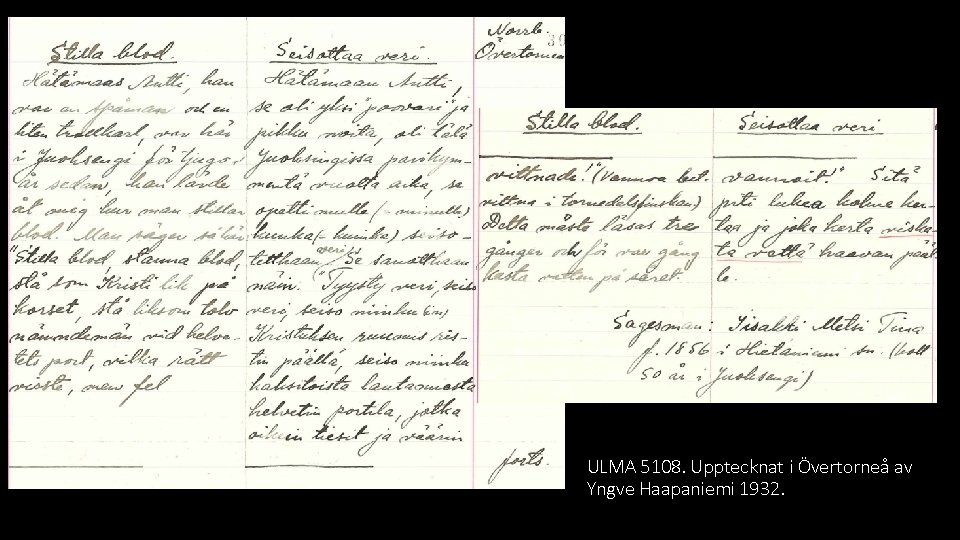 Norrb.
30
Övertorneå
Stilla blod.
Hätämaas Antti, han
var en spåman och en
liten trollkarl, var här
i Juoksengi för tjugo
år sedan, han lärde
åt mig hur man stillar
blod. Man säger så här
"Stilla blod, stanna blod,
stå som Kristi lik på
korset, stå liksom tolv
nämndemän vid helve-
tets port, vilka rätt
visste, men fel
Seisottaa veri.
Hätämaan Antti,
se oli yksi "poovari" ja
pikku noita, oli tälä
Juoksingissa parikym-
mentä vuotta aika, se
opatti mulle (= minulle)
kunka (= kuinka) seiso-
tethaan veri. Se sanotthaan
näin. "Tyysty veri, seiso
veri, seiso niinku (in)
Kristuksen ruumis ris-
tin päällä, seiso niinku
kaksitoista lautaomesta
helvetin portila, jotka
oikein tiesit ja väärin
forts.
Stilla blod.
vittnade!" (Vannoa bet.
vittna i tornedalsfinskan)
Detta måste läsas tre
gånger och för var gång
kasta vatten på såret.
Seisottaa veri
vannoit!" Sitä
piti lukea kolme ker-
taa ja joka kerta viska-
ta vattä haavan pääl-
le.
Sagesman: Iisakki Metsi Tuna
f. 1856 i Hietaniemi sn. (bott
50 år i Juoksengi)
ULMA 5108. Upptecknat i Övertorneå av
Yngve Haapaniemi 1932.